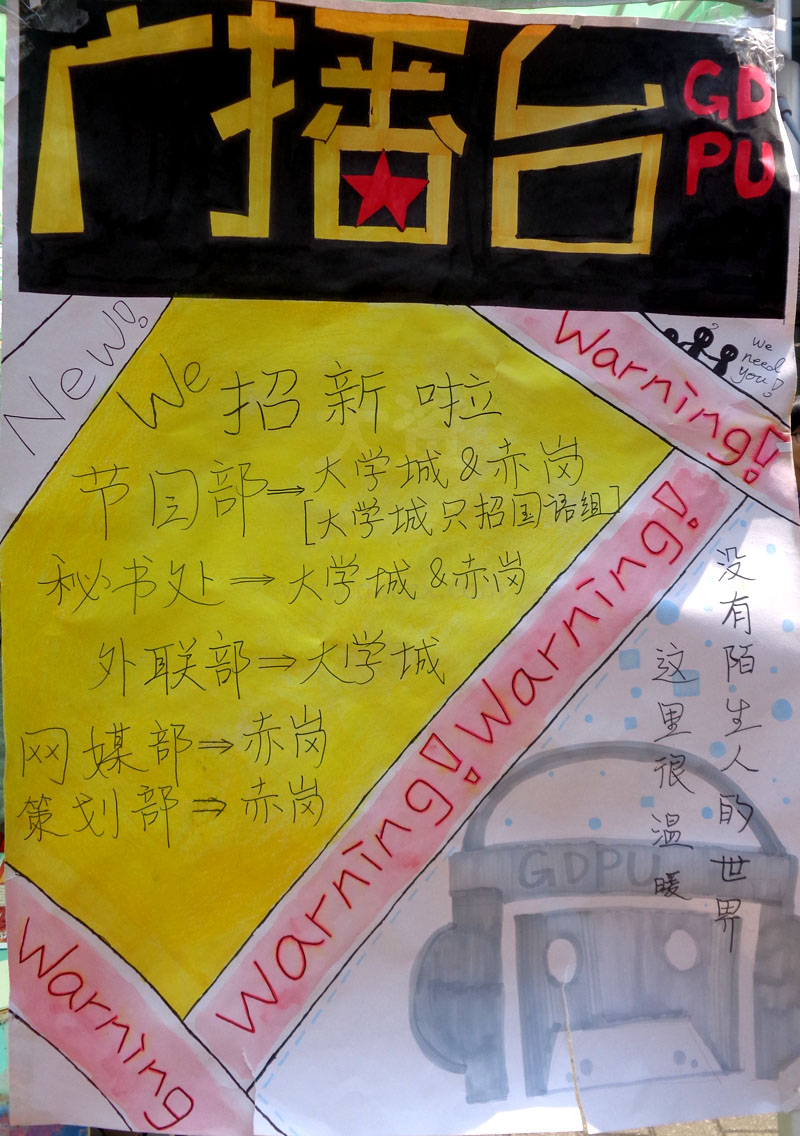 广播台
GD
PU
New!
We
need
you!
Warning!
We 招新啦
节目部⇒大学城&赤岗
[大学城只招国语组]
秘书处⇒大学城&赤岗
外联部⇒大学城
网媒部⇒赤岗
策划部⇒赤岗
Warning! Warning!
Warning
没有陌生人的世界
这里很温暖
GDPU